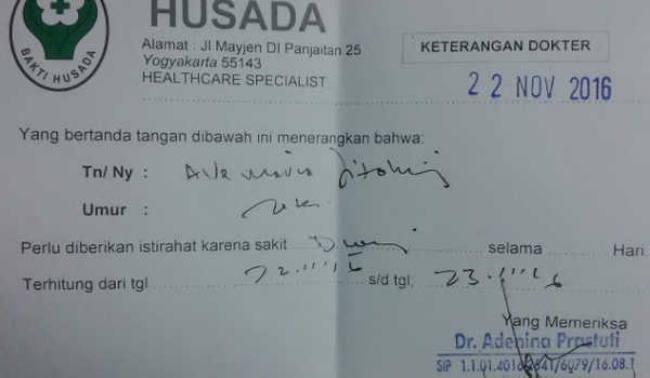 HUSADA
Alamat : Jl Mayjen DI Panjaitan 25
Yogyakarta 55143
HEALTHCARE SPECIALIST
BAKTI HUSADA
KETERANGAN DOKTER
22 NOV 2016
Yang bertanda tangan dibawah ini menerangkan bahwa:
Tn/ Ny :
Umur :
Perlu diberikan istirahat karena sakit selama Hari
Terhitung dari tgl 22.11.16 s/d tgl. 23.11.16
Yang Memeriksa
Dr. Adenina Prastuti
SIP